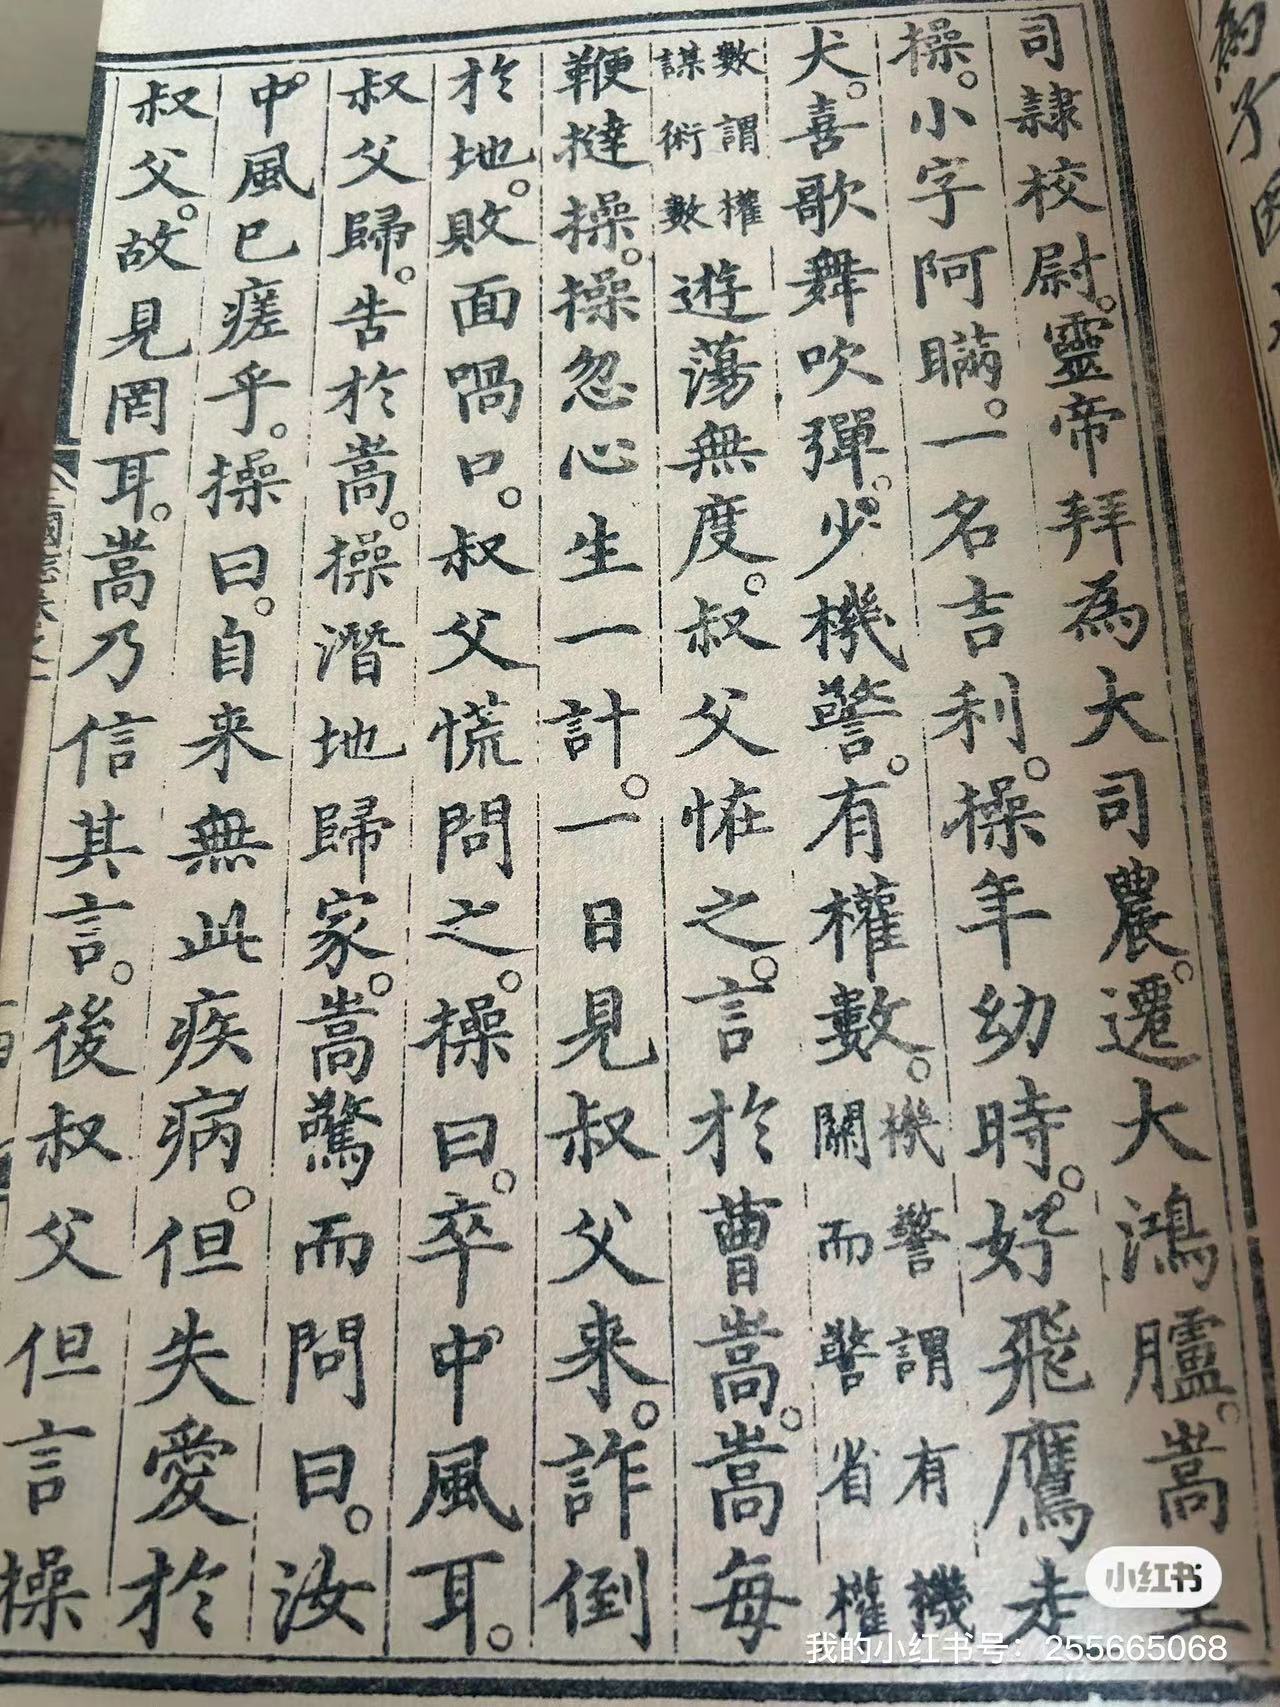 司隸校尉。靈帝拜為大司農。遷大鴻臚。嵩生
操。小字阿瞞。一名吉利。操年幼時。好飛鷹走
犬。喜歌舞吹彈。少機警。有權數。機警謂有機關而警省權
數謂權謀術數遊蕩無度。叔父恠之。言於曹嵩。嵩每
鞭撻操。操忽心生一計。一日見叔父来。詐倒
於地。敗面喎口。叔父慌問之。操曰。卒中風耳。
叔父歸。告於嵩。操潛地歸家。嵩驚而問曰。汝
中風已瘥乎。操曰。自来無此疾病。但失愛於
叔父。故見罔耳。嵩乃信其言。後叔父但言操
小红书
我的小红书号：255665068